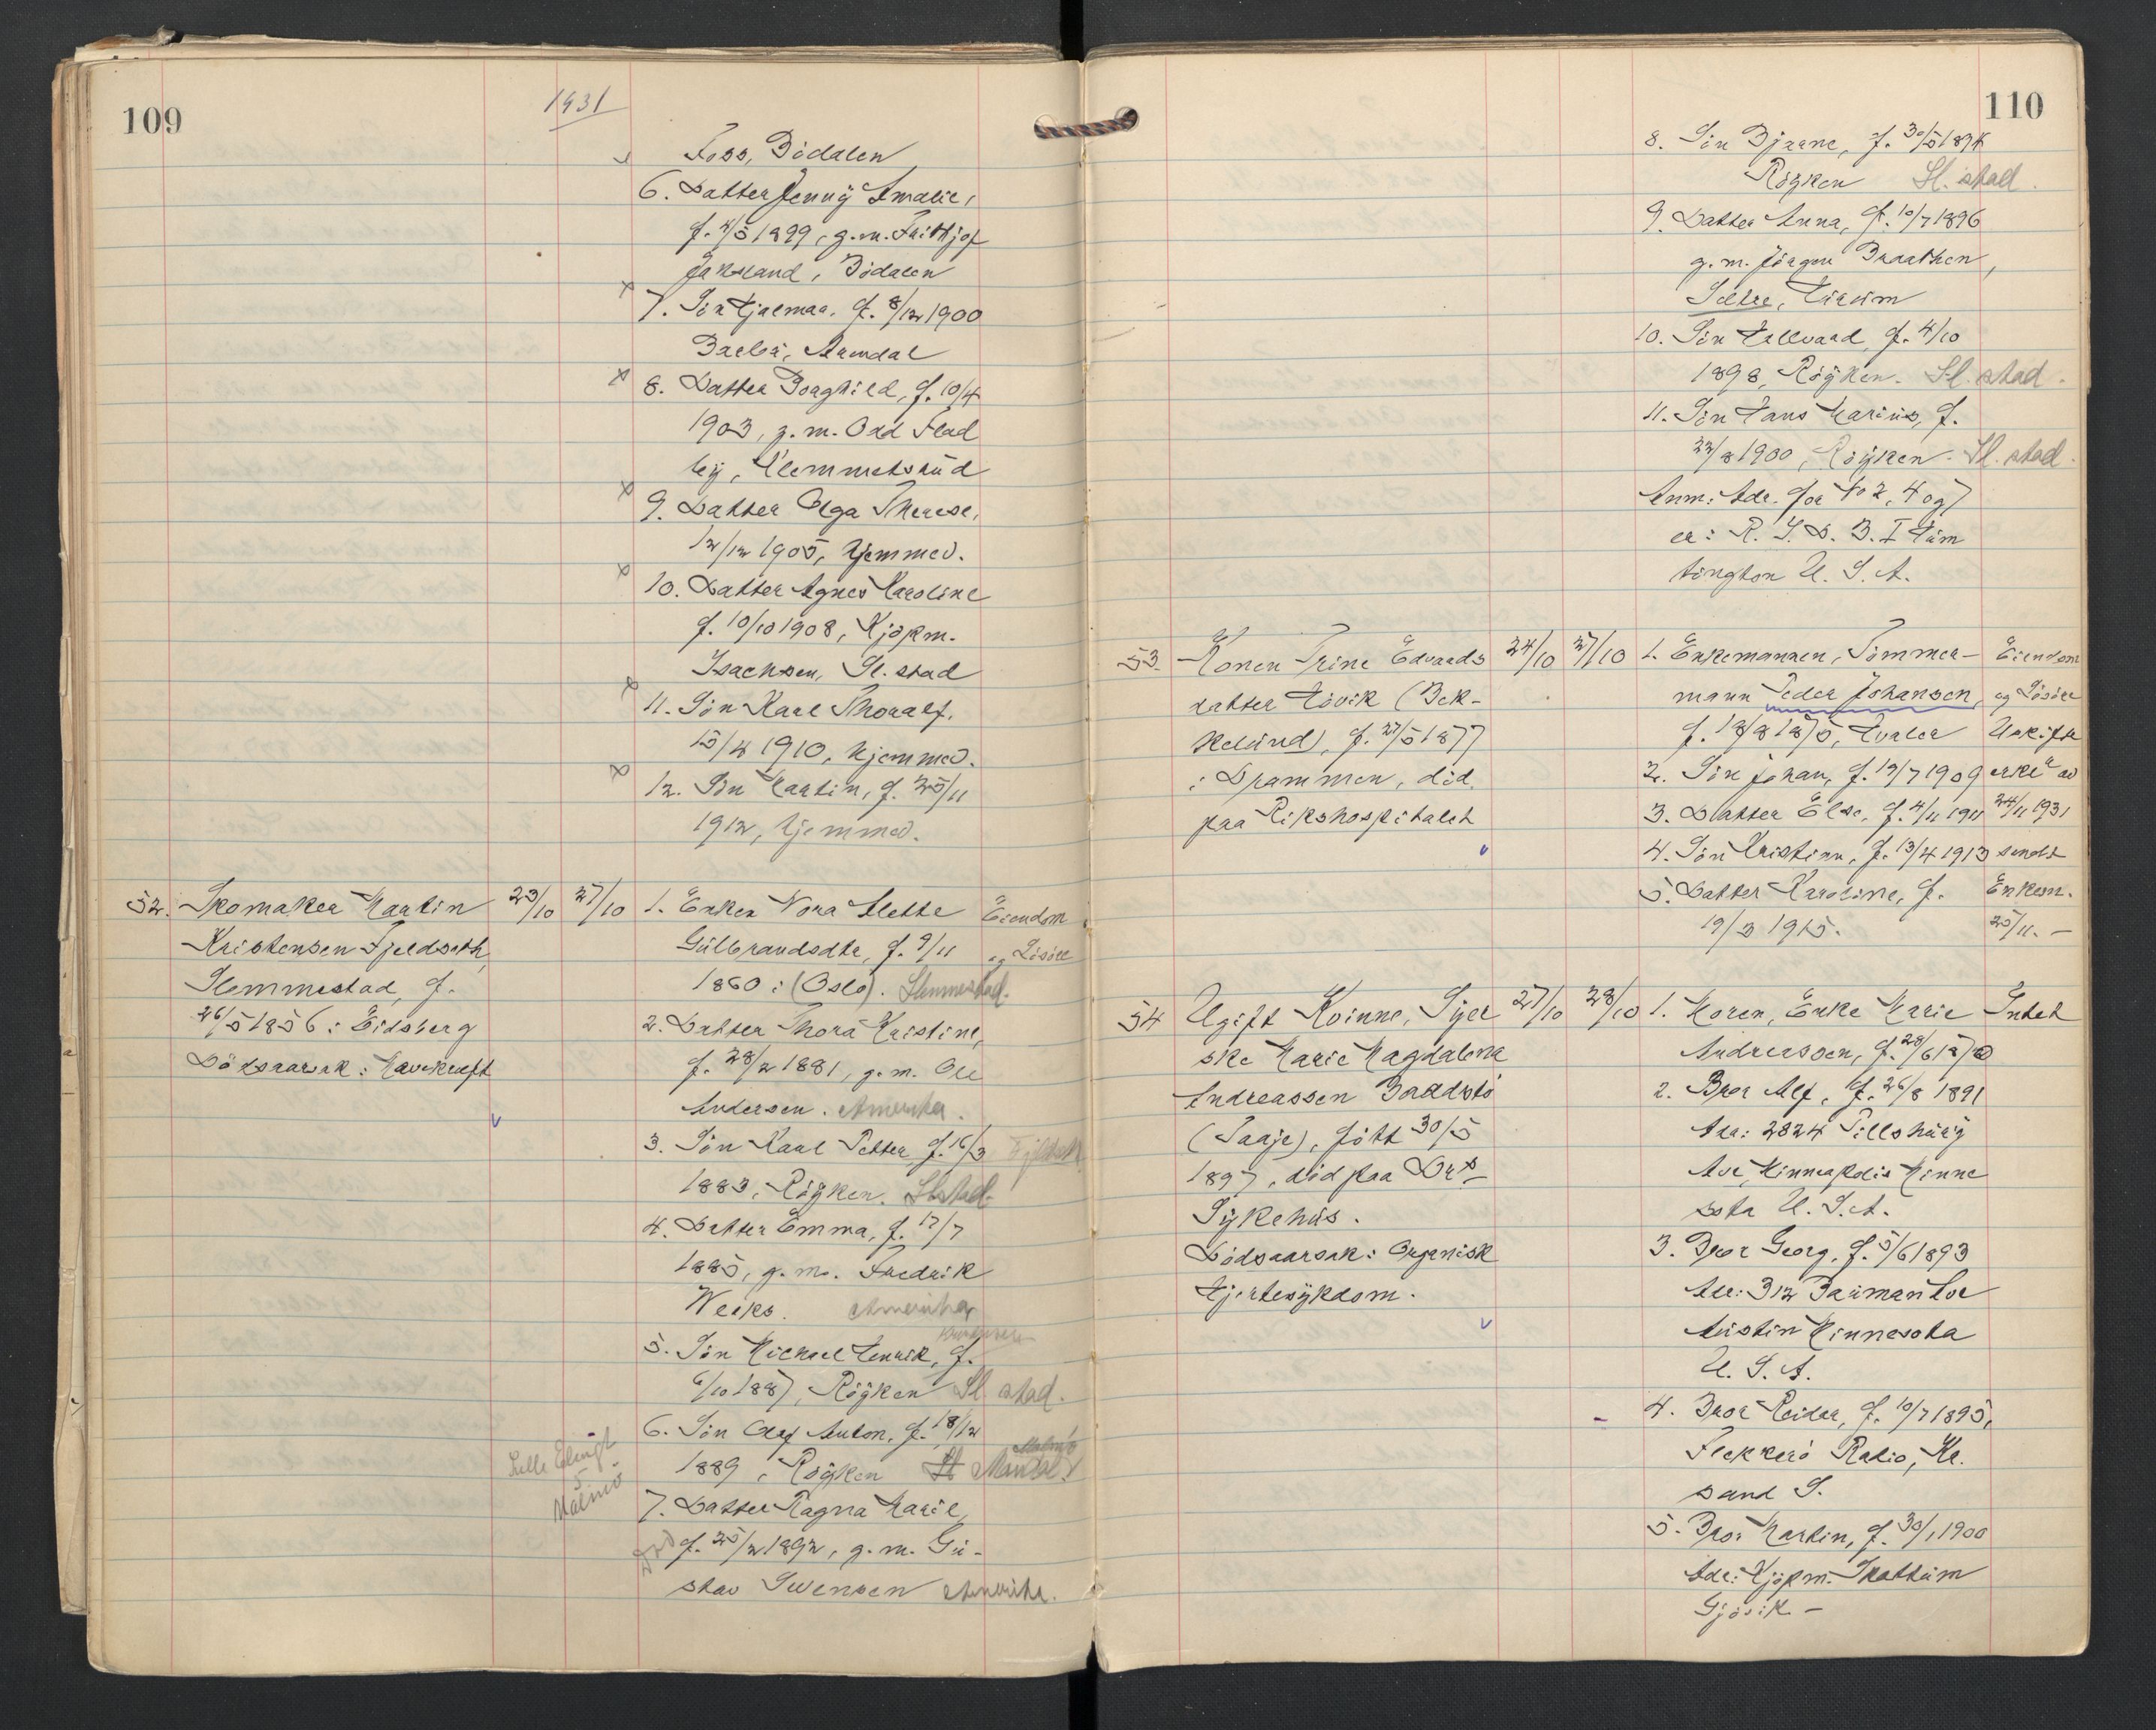 109
1931
Foss, Bödalen
6. Datter Jenny Amalie,
f. 4/5 1899, g.m. Frithjof
Jakeland, Bödalen
7. Sön Hjalmar, f. 8/12 1900
Barbu, Arendal
8. Datter Borghild, f. 10/4
1903, g.m. Odd Flad
by, Klemmetsrud
9. Datter Olga Therese,
12/12 1905, hjemmev.
10. Datter Agnes Karoline
f. 10/10 1908, Kjöpm.
Isachsen, Sl. stad
11. Sön Karl Thoralf,
15/4 1910, hjemmev.
12. Sön Martin, f. 25/11
1912, hjemmev.
52. Skomaker Martin 23/10 27/10 1. Enken Nora Alette Eiendom
Kristensen Fjeldseth Gulbrandsdtr, f. 9/11 og Lösöre
Slemmestad, f. 1860 i (Oslo). Slemmestad.
26/5 1856 i Eidsberg 2. Datter Thora Kristine,
Dödsaarsak: Mavekreft f. 28/2 1881, g.m. Ole
Andersen. Amerika.
3. Sön Karl Petter f. 16/3 Fjeldseth
1883, Röyken. Sl.stad
4. Datter Emma, f. 17/7
1885, g.m. Fredrik
Weeks. Amerika
5. Sön Michael Henrik, f.
6/10 1887, Röyken Sl. stad.
6. Sön Olaf Anton, f. 18/12
1889, Röyken Malmö
Malmö
7. Datter Ragna Marie,
Död f. 25/2 1892, g.m. Gu-
stav Svensen Amerika.
110
8. Sön Bjarne, f. 30/5 1894
Röyken Sl. stad.
9. Datter Anna, f. 10/7 1896
g.m. Jörgen Braathen,
Sætre, Hurum
10. Sön Hallvard, f. 4/10
1898, Röyken. Sl. stad.
11. Sön Hans Marius, f.
22/8 1900, Röyken. Sl. stad.
Anm: Adr. for No 2, 4 og 7
er: R. F. D. B. I Hun
tington U. S. A.
53. Konen Trine Edvards 24/10 27/10 1. Enkemannen, Tömmer- Eiendom
datter Hövik (Bek- mann Peder Johansen, og Lösöre
kelund), f. 27/5 1877 f. 18/8 1875, Hvaler Uskifte
i Drammen, död 2. Sön Johan, f. 19/7 1909 erkl. av
paa Rikshospitalet 3. Datter Else, f. 4/11 1911 24/11 1931
4. Sön Kristian, f. 13/4 1913 sendt
5. Datter Karoline, f. Enkem.
19/3 1915. 25/11. -
54 Ugift Kvinne, Syer 27/10 28/10 1. Moren, Enke Marie Intet
ske Marie Magdalena Andreassen, f. 28/6 1870
Andreassen Bredstö 2. Bror Alf, f. 26/8 1891
(Taaje), fött 30/5 Adr: 2824 Pillsbury
1897, död paa Dr.s Ave, Minneapolis Minne
Sykehus. sota U. S. A.
Dödsaarsak: Organisk 3. Bror Georg, f. 5/6 1893
Hjertesykdom. Adr: 312 Bauman Ave
Austin Minnesota
U. S. A.
4. Bror Reidar, f. 10/7 1895,
Flekkerö Radio, Kr.
sand S.
5. Bror Martin, f. 30/1 1900
Adr: Kjöpm. Skattum
Gjövik -